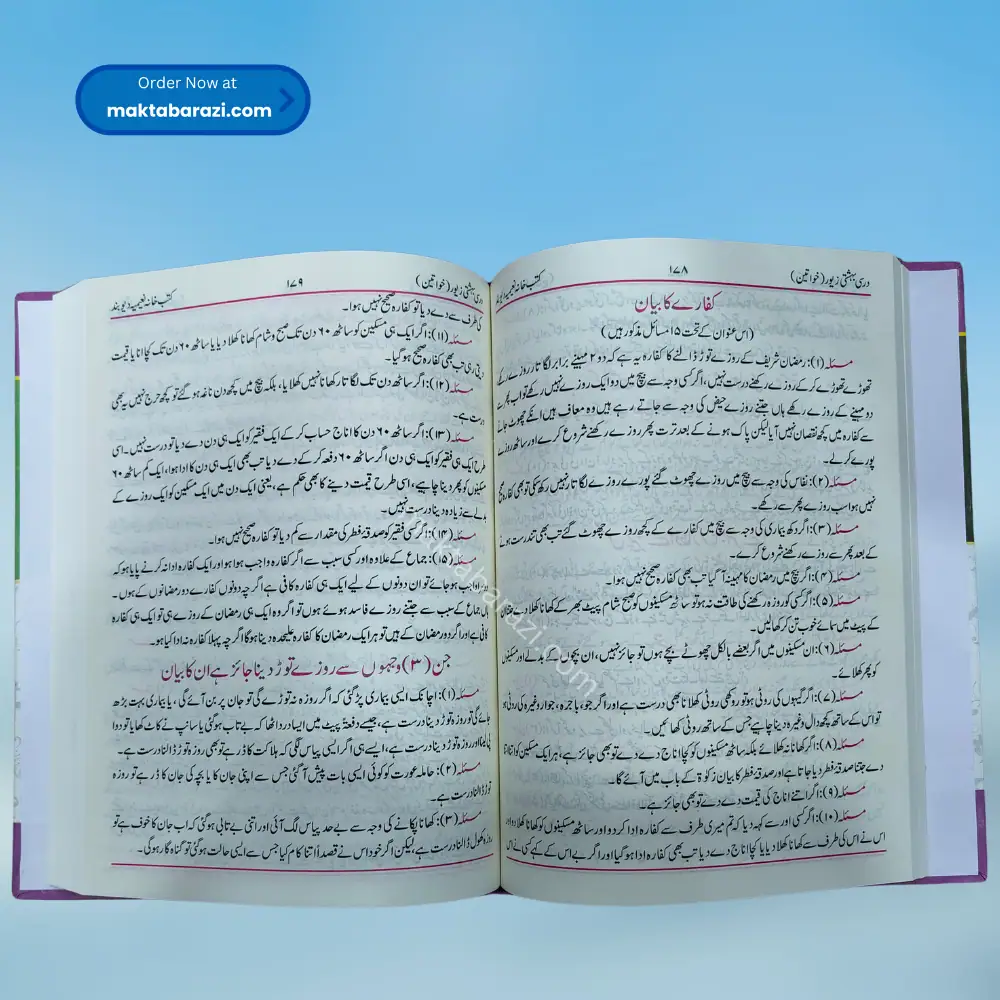 Order Now at
maktabarazi.com
درسی بہشتی زیور (خواتین) ۱۷۸ کتب خانہ نعیمیہ دیوبند
کفارے کا بیان
(اس عنوان کے تحت ۱۵ مسائل مذکور ہیں)
مسئلہ (۱): رمضان شریف کے روزے توڑ ڈالنے کا کفارہ یہ ہے کہ دو ۲ مہینے برابر لگاتار روزے رکھے
تھوڑے تھوڑے کر کے روزے رکھنے درست نہیں، اگر کسی وجہ سے بیچ میں دو ایک روزے نہیں رکھے تو اب پھر سے
دو مہینے کے روزے رکھے ہاں جتنے روزے حیض کی وجہ سے جاتے رہے ہیں وہ معاف ہیں انکے چھوٹ جانے
سے کفارہ میں کچھ نقصان نہیں آیا لیکن پاک ہونے کے بعد ترت پھر روزے رکھنے شروع کرے اور ساٹھ روزے
پورے کر لے۔
مسئلہ (۲): نفاس کی وجہ سے بیچ میں روزے چھوٹ گئے پورے روزے لگاتار نہیں رکھ سکی تو بھی کفارہ صحیح
نہیں ہوا سب روزے پھر سے رکھے۔
مسئلہ (۳): اگر دکھ بیماری کی وجہ سے بیچ میں کفارے کے کچھ روزے چھوٹ گئے تب بھی تندرست ہونے
کے بعد پھر سے روزے رکھنے شروع کرے۔
مسئلہ (۴): اگر بیچ میں رمضان کا مہینہ آ گیا تب بھی کفارہ صحیح نہیں ہوا۔
مسئلہ (۵): اگر کسی کو روزہ رکھنے کی طاقت نہ ہو تو ساٹھ مسکینوں کو صبح شام پیٹ بھر کے کھانا کھلا دے جتنا ان
کے پیٹ میں سمائے خوب تن کر کھالیں۔
مسئلہ (۶): ان مسکینوں میں اگر بعضے بالکل چھوٹے بچے ہوں تو جائز نہیں، ان بچوں کے بدلے اور مسکینوں
کو پھر کھلائے۔
مسئلہ (۷): اگر گیہوں کی روٹی ہو تو روکھی روٹی کھلانا بھی درست ہے اور اگر جو، باجرہ، جوار وغیرہ کی روٹی ہو
تو اس کے ساتھ کچھ دال وغیرہ دینا چاہیے جس کے ساتھ روٹی کھائیں۔
مسئلہ (۸): اگر کھانا نہ کھلائے بلکہ ساٹھ مسکینوں کو کچا اناج دے دے تو بھی جائز ہے، ہر ایک مسکین کو اتنا اتنا
دے جتنا صدقۂ فطر دیا جاتا ہے اور صدقۂ فطر کا بیان زکوٰۃ کے باب میں آئے گا۔
مسئلہ (۹): اگر اتنے اناج کی قیمت دے دے تو بھی جائز ہے۔
مسئلہ (۱۰): اگر کسی اور سے کہہ دیا کہ تم میری طرف سے کفارہ ادا کر دو اور ساٹھ مسکینوں کو کھانا کھلا دو اور
اس نے اس کی طرف سے کھانا کھلا دیا یا کچا اناج دے دیا تب بھی کفارہ ادا ہو گیا اور اگر بے اس کے کہے کسی نے اس
درسی بہشتی زیور (خواتین) ۱۷۹ کتب خانہ نعیمیہ دیوبند
کی طرف سے دے دیا تو کفارہ صحیح نہیں ہوا۔
مسئلہ (۱۱): اگر ایک ہی مسکین کو ساٹھ ۶۰ دن تک صبح و شام کھانا کھلا دیا یا ساٹھ ۶۰ دن تک کچا اناج یا قیمت
دیتی رہی تب بھی کفارہ صحیح ہو گیا۔
مسئلہ (۱۲): اگر ساٹھ دن تک لگاتار کھانا نہیں کھلایا، بلکہ بیچ میں کچھ دن ناغہ ہو گئے تو کچھ حرج نہیں یہ بھی
درست ہے۔
مسئلہ (۱۳): اگر ساٹھ ۶۰ دن کا اناج حساب کر کے ایک فقیر کو ایک ہی دن دے دیا تو درست نہیں۔ اسی
طرح ایک ہی فقیر کو ایک ہی دن اگر ساٹھ ۶۰ دفعہ کر کے دے دیا تب بھی ایک ہی دن کا ادا ہوا، ایک کم ساٹھ ۶۰
مسکینوں کو پھر دینا چاہیے، اسی طرح قیمت دینے کا بھی حکم ہے، یعنی ایک دن میں ایک مسکین کو ایک روزے کے
بدلے سے زیادہ دینا درست نہیں۔
مسئلہ (۱۴): اگر کسی فقیر کو صدقۂ فطر کی مقدار سے کم دیا تو کفارہ صحیح نہیں ہوا۔
مسئلہ (۱۵): جماع کے علاوہ اور کسی سبب سے اگر کفارہ واجب ہوا ہو اور ایک کفارہ ادا نہ کرنے پایا ہو کہ
دوسرا واجب ہو جائے تو ان دونوں کے لیے ایک ہی کفارہ کافی ہے اگرچہ دونوں کفارے دو رمضانوں کے ہوں۔
ہاں جماع کے سبب سے جتنے روزے فاسد ہوئے ہوں تو اگر وہ ایک ہی رمضان کے روزے ہیں تو ایک ہی کفارہ
کافی ہے اور اگر دو رمضان کے ہیں تو ہر ایک رمضان کا کفارہ علیحدہ دینا ہوگا اگرچہ پہلا کفارہ نہ ادا کیا ہو۔
جن (۳) وجہوں سے روزے توڑ دینا جائز ہے ان کا بیان
مسئلہ (۱): اچانک ایسی بیماری پڑ گئی کہ اگر روزہ نہ توڑے گی تو جان پر بن آئے گی، یا بیماری بہت بڑھ
جائے گی تو روزہ توڑ دینا درست ہے، جیسے دفعۃً پیٹ میں ایسا درد اٹھا کہ بے تاب ہو گئی یا سانپ نے کاٹ کھایا تو دوا
پی لینا اور روزہ توڑ دینا درست ہے، ایسے ہی اگر ایسی پیاس لگی کہ ہلاکت کا ڈر ہے تو بھی روزہ توڑ ڈالنا درست ہے۔
مسئلہ (۲): حاملہ عورت کو کوئی ایسی بات پیش آ گئی جس سے اپنی جان کا یا بچہ کی جان کا ڈر ہے تو روزہ
توڑ ڈالنا درست ہے۔
مسئلہ (۳): کھانا پکانے کی وجہ سے بے حد پیاس لگ آئی اور اتنی بے تابی ہو گئی کہ اب جان کا خوف ہے تو
روزہ کھول ڈالنا درست ہے، لیکن اگر خود اس نے قصداً اتنا کام کیا جس سے ایسی حالت ہو گئی تو گناہ گار ہوگی۔
maktabarazi.com